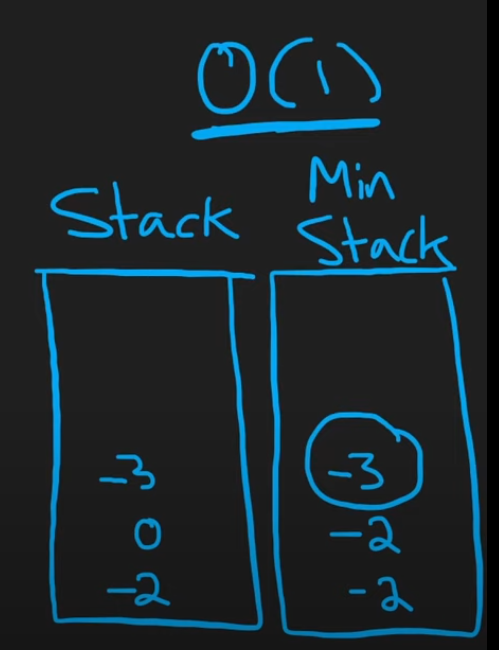 O(1)
Stack
Min
Stack
-3
0
-2
-3
-2
-2